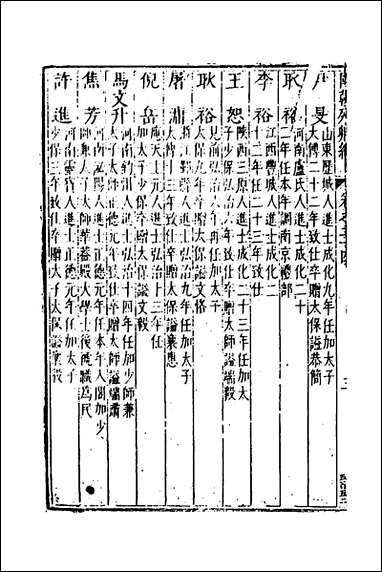 國朝列卿紀 卷之二十四
尹旻
山東歷城人進士成化九年任加太子
太傅二十二年致仕卒贈太保諡恭簡
耿裕
河南盧氏人進士成化二十
二年任本年調南京禮部
李裕
江西豐城人進士成化二
十二年任二十三年致仕
王恕
陝西三原人進士成化二十三年任加太
子少保弘治六年致仕卒贈太師諡端毅
耿裕
見前弘治六年再任加太子
太保九年卒贈太保諡文恪
屠滽
浙江鄞縣人進士弘治九年任加太子
太傅十三年致仕卒贈太保諡襄惠
倪岳
應天上元人進士弘治十三年任
加太子少保卒贈少保諡文毅
馬文升
河南鈞州人進士弘治十四年任加少師兼
太子太師正德元年致仕卒贈太師諡端肅
焦芳
河南泌陽人進士正德元年任本年入閣加少
師兼太子太師華蓋殿大學士後褫職為民
許進
河南靈寶人進士正德元年任加太子
少保三年致仕卒贈太子太保諡襄毅
三